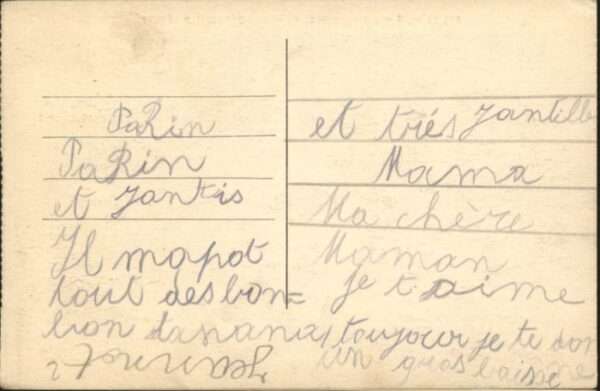 PaRin
PaRin
et jantis
Il mapot
tout des bon=
bon danana
et trés jantille
Mama
Ma chère
Maman
je t aime
toujour je te don
un gros baisé